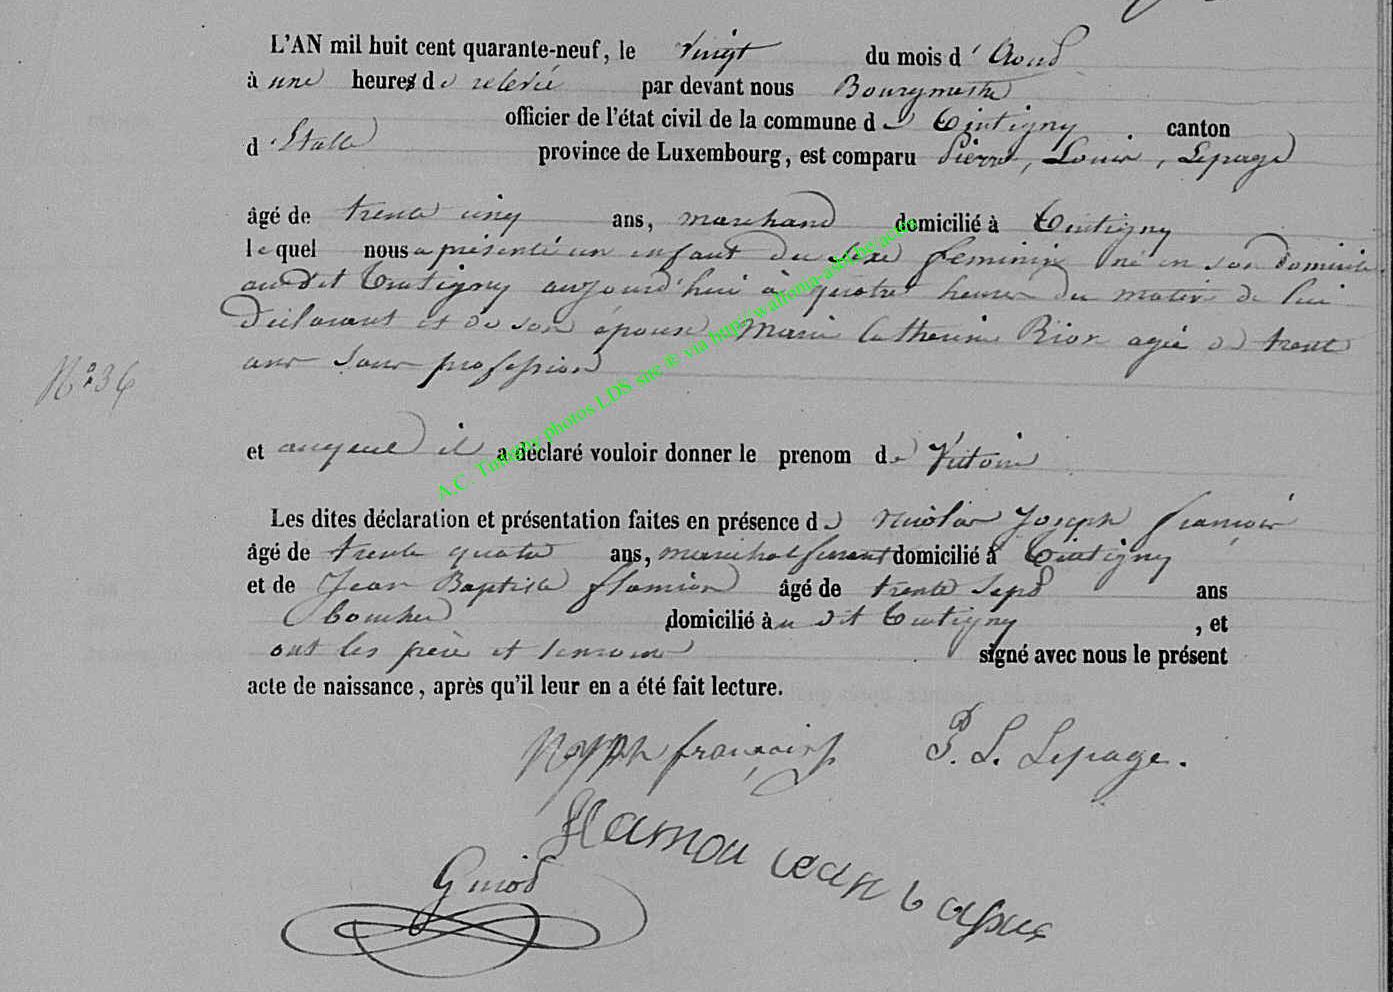 L'AN mil huit cent quarante-neuf, le vingt du mois d'Aout
à une heures de relevée par devant nous Bourgmestre
officier de l'état civil de la commune de Tintigny canton
d'Etalle province de Luxembourg, est comparu Pierre, Louis, Lepage
âgé de trente cinq ans, marchand domicilié à Tintigny
lequel nous a présenté un enfant du sexe feminin né en son domicile
audit Tintigny aujourd'hui à quatre heures du matin de lui
déclarant et de son épouse Marie Catherine Rion agée de trente
ans sans profession
N° 36
et auquel il a déclaré vouloir donner le prenom de Victoire
Les dites déclaration et présentation faites en présence de Nicolas Joseph François
âgé de trente quatre ans, marechal ferrant domicilié à Tintigny
et de Jean Baptiste Flamion âgé de trente sept ans
boucher domicilié au dit Tintigny , et
ont les père et temoins signé avec nous le présent
acte de naissance, après qu'il leur en a été fait lecture.
françois P. L. Lepage.
Guiot
A.C. Tintigny photos LDS site ® via http://wallonia-asbl.be/actes